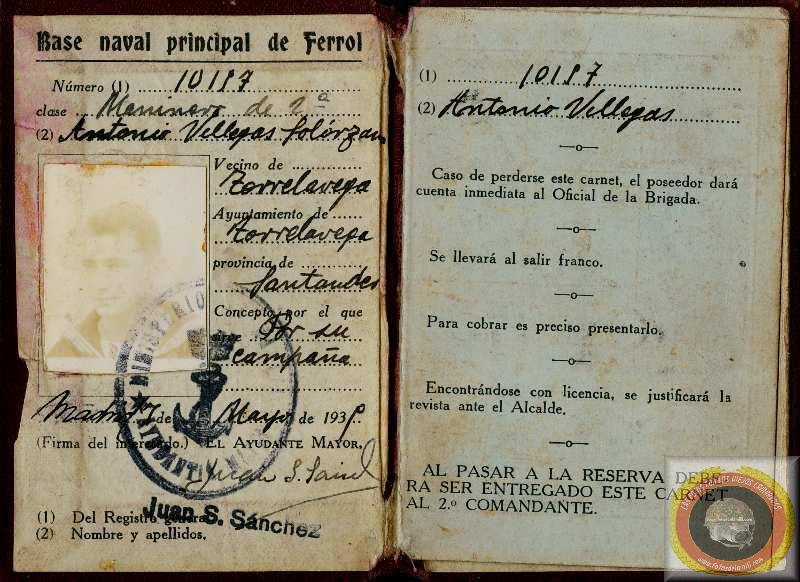 Base naval principal de Ferrol
Número (1) 10187
clase Marinero de 2ª
(2) Antonio Villegas Solórzano
Vecino de
Torrelavega
Ayuntamiento de
Torrelavega
provincia de
Santander
Concepto por el que
sirve Por su
campaña
Madrid 7 de Mayo de 193
(Firma del interesado.) EL AYUDANTE MAYOR,
Juan S. Sánchez
(1) Del Registro general
(2) Nombre y apellidos.
MINISTERIO
AYUDANTIA
(1) 10187
(2) Antonio Villegas
Caso de perderse este carnet, el poseedor dará
cuenta inmediata al Oficial de la Brigada.
Se llevará al salir franco.
Para cobrar es preciso presentarlo.
Encontrándose con licencia, se justificará la
revista ante el Alcalde.
AL PASAR A LA RESERVA DEBE
RA SER ENTREGADO ESTE CARNET
AL 2.º COMANDANTE.